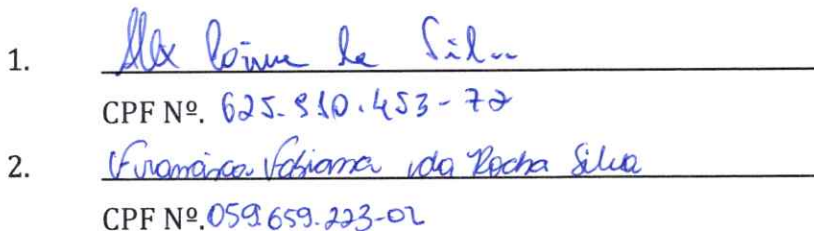 1. Alex de Silva
CPF Nº. 625.910.453-72
2. Francisca Fabiana da Rocha Silva
CPF Nº. 059.659.223-02